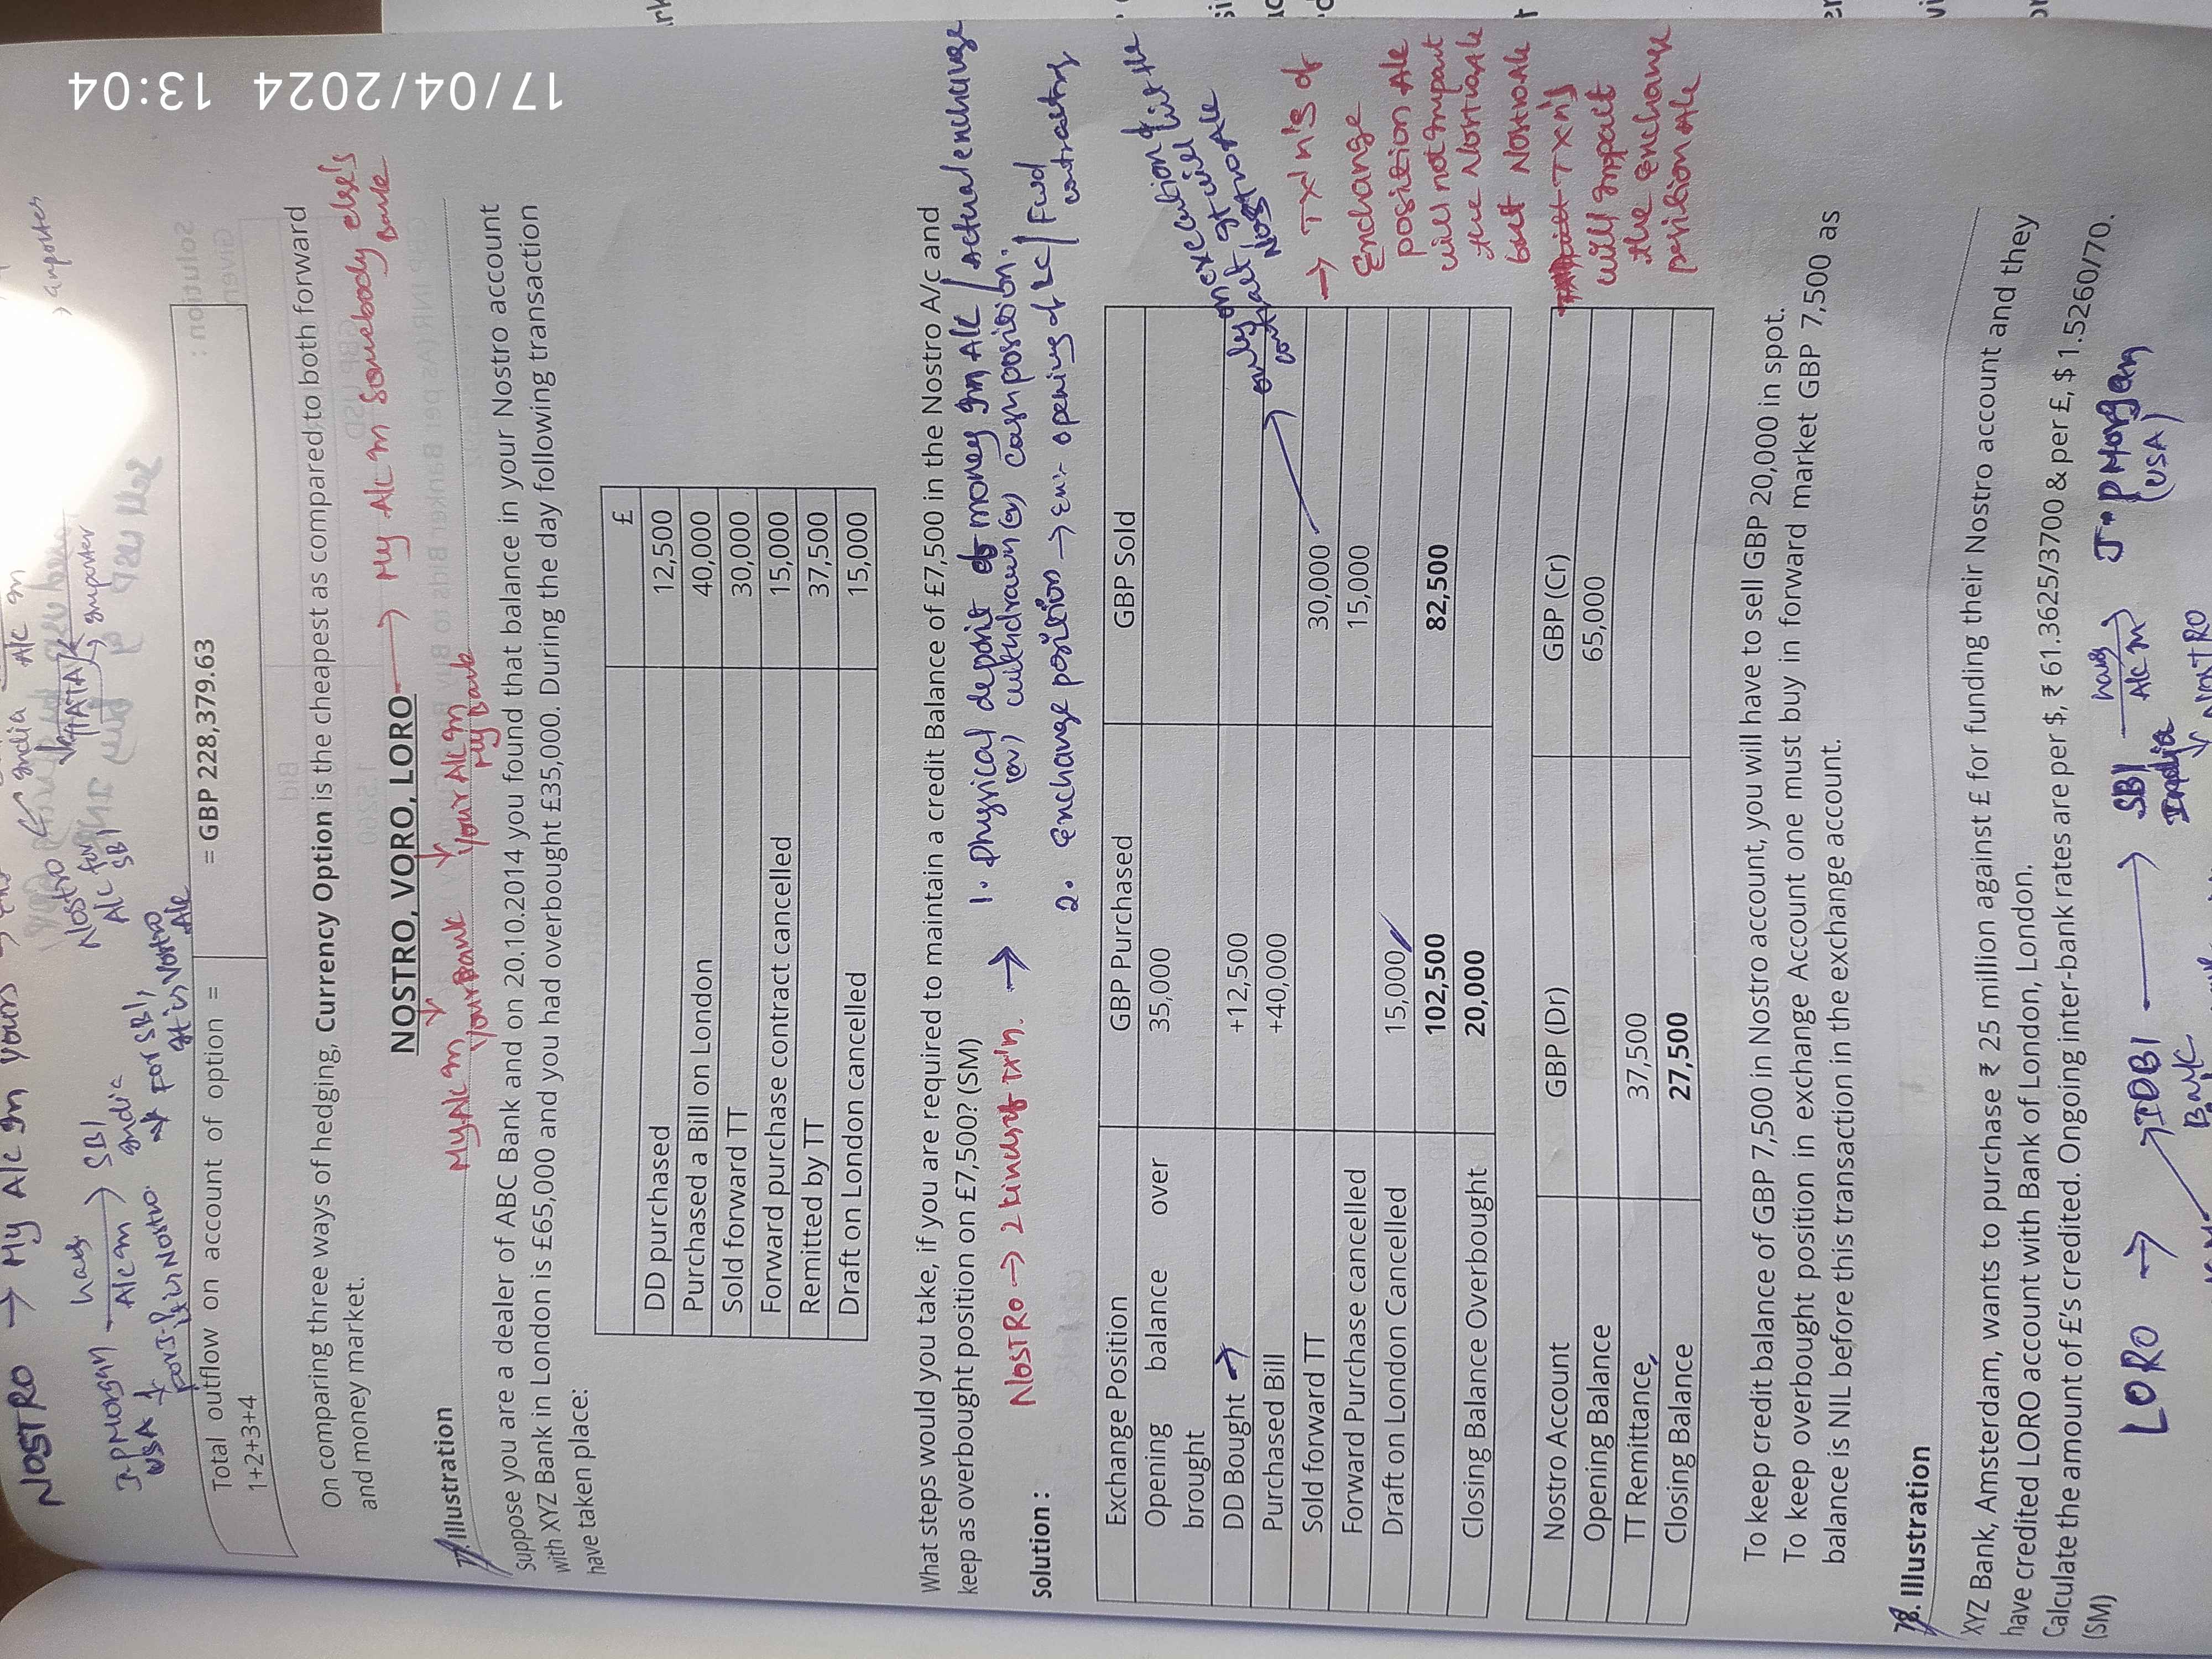 17/04/2024 13:04
NOSTRO → My A/c in yours
J.P Morgan has A/c in → SBI India
USA
for J.P it is Nostro. for SBI, it is Vostro A/c
Nostro A/c for SBI
India
TATA → importer
> exporter
Total outflow on account of option = 1+2+3+4 = GBP 228,379.63
On comparing three ways of hedging, Currency Option is the cheapest as compared to both forward
and money market.
NOSTRO, VORO, LORO → My A/c in somebody else's Bank
My A/c in your Bank
Your A/c in My Bank
77. Illustration
Suppose you are a dealer of ABC Bank and on 20.10.2014 you found that balance in your Nostro account
with XYZ Bank in London is £65,000 and you had overbought £35,000. During the day following transaction
have taken place:
£
DD purchased 12,500
Purchased a Bill on London 40,000
Sold forward TT 30,000
Forward purchase contract cancelled 15,000
Remitted by TT 37,500
Draft on London cancelled 15,000
What steps would you take, if you are required to maintain a credit Balance of £7,500 in the Nostro A/c and
keep as overbought position on £7,500? (SM)
NOSTRO → 2 kinds of TX'n. →
1. Physical deposit of money in A/c / actual exchange
(or) withdrawn (or) cash position.
2. exchange position → Ex:- opening of LC / Fwd contracting
Solution :
Exchange Position GBP Purchased GBP Sold
Opening balance over brought 35,000
DD Bought → +12,500
Purchased Bill +40,000
Sold forward TT 30,000
Forward Purchase cancelled 15,000
Draft on London Cancelled 15,000
102,500 82,500
Closing Balance Overbought 20,000
only on execution of
it will hit the
Nostro A/c
→ TX'n's of
Exchange
position A/c
will not impact
the Nostro A/c
but Nostro A/c
TXn's
will impact
the exchange
position A/c
Nostro Account GBP (Dr) GBP (Cr)
Opening Balance 65,000
TT Remittance 37,500
Closing Balance 27,500
To keep credit balance of GBP 7,500 in Nostro account, you will have to sell GBP 20,000 in spot.
To keep overbought position in exchange Account one must buy in forward market GBP 7,500 as
balance is NIL before this transaction in the exchange account.
78. Illustration
XYZ Bank, Amsterdam, wants to purchase ₹ 25 million against £ for funding their Nostro account and they
have credited LORO account with Bank of London, London.
Calculate the amount of £'s credited. Ongoing inter-bank rates are per $, ₹ 61.3625/3700 & per £, $ 1.5260/70.
(SM)
LORO → IDBI Bank → SBI India has A/c in J.P Morgan (USA)
NOSTRO